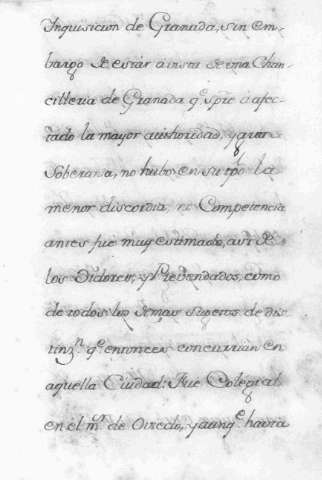 Inquisicion de Granada, sin em-
bargo de estár a vista de una Chan-
cilleria de Granada qe. spre. á afec-
tado la mayor authoridad, y quasi
Soberana, no hubo en su tpo. la
menor discordia, ni Competencia
antes fue muy estimado, asi de
los Oidores, y Prevendados, como
de todos los demas Sugetos de dis
tinzn. qe. entonces concurrian en
aquella Ciudad: Fue Colegial
en el mr. de Oviedo, y aunqe. havia